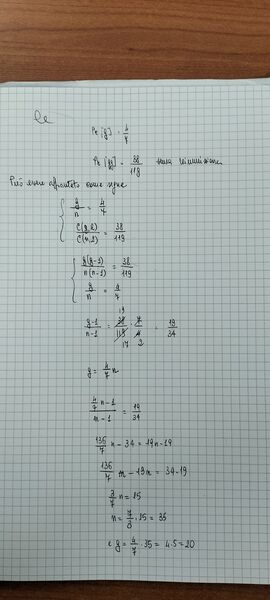 Pr [g] = 4/7
Pr [gg] = 38/119 senza
Può essere
{ g/n = 4/7
C(g,2)/C(n,2) = 38/119
{ g(g-1)/n(n-1) = 38/119
g/n = 4/7
g-1/n-1 = 38/119 · 7/4 = 19/34
19
17 2
g = 4/7 n
4/7 n - 1 / n - 1 = 19/34
136/7 n - 34 = 19n - 19
136/7 n - 19n = 34 - 19
3/7 n = 15
n = 7/3 · 15 = 35
e g = 4/7 · 35 = 4·5 = 20